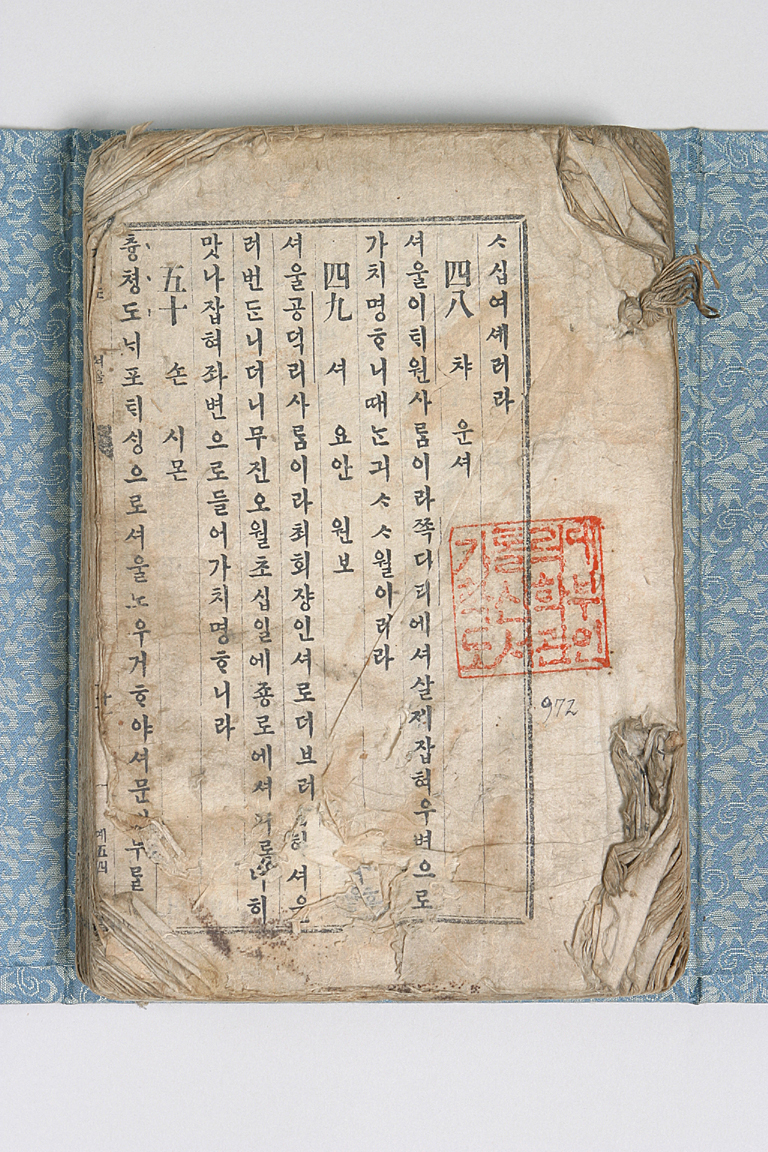 ᄉᆞ십여셰러라
四八 챠 운셔
셔울이ᄐᆡ원사ᄅᆞᆷ이라쪽다리에셔살제잡혀우변으로
가치명ᄒᆞ니때ᄂᆞᆫ긔ᄉᆞᄉᆞ월이러라
四九 셔 요안 원보
셔울공덕리사ᄅᆞᆷ이라최회쟝인셔로더브러 셔으
러번ᄃᆞᆫ니더니무진오월초십일에죵로에셔
맛나잡혀좌변으로들어가치명ᄒᆞ니라
五十 손 시몬
츙쳥도ᄂᆡ포ᄐᆡ셩으로셔울노우거ᄒᆞ야셔문
가톨릭대
학신학부
도서관인
972